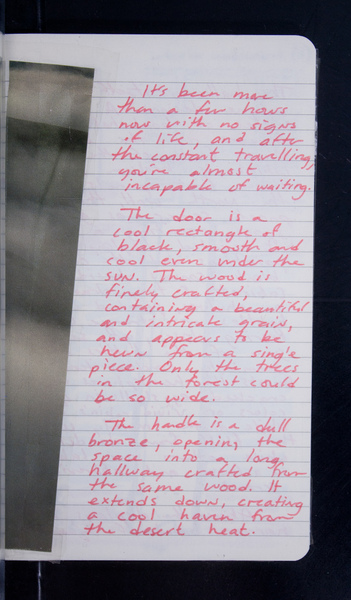 It's been more
than a few hours
now with no signs
of life, and after
the constant travelling,
you're almost
incapable of waiting.
The door is a
cool rectangle of
black, smooth and
cool even under the
sun. The wood is
finely crafted,
containing a beautiful
and intricate grain,
and appears to be
hewn from a single
piece. Only the trees
in the forest could
be so wide.
The handle is a dull
bronze, opening the
space into a long
hallway crafted from
the same wood. It
extends down, creating
a cool haven from
the desert heat.